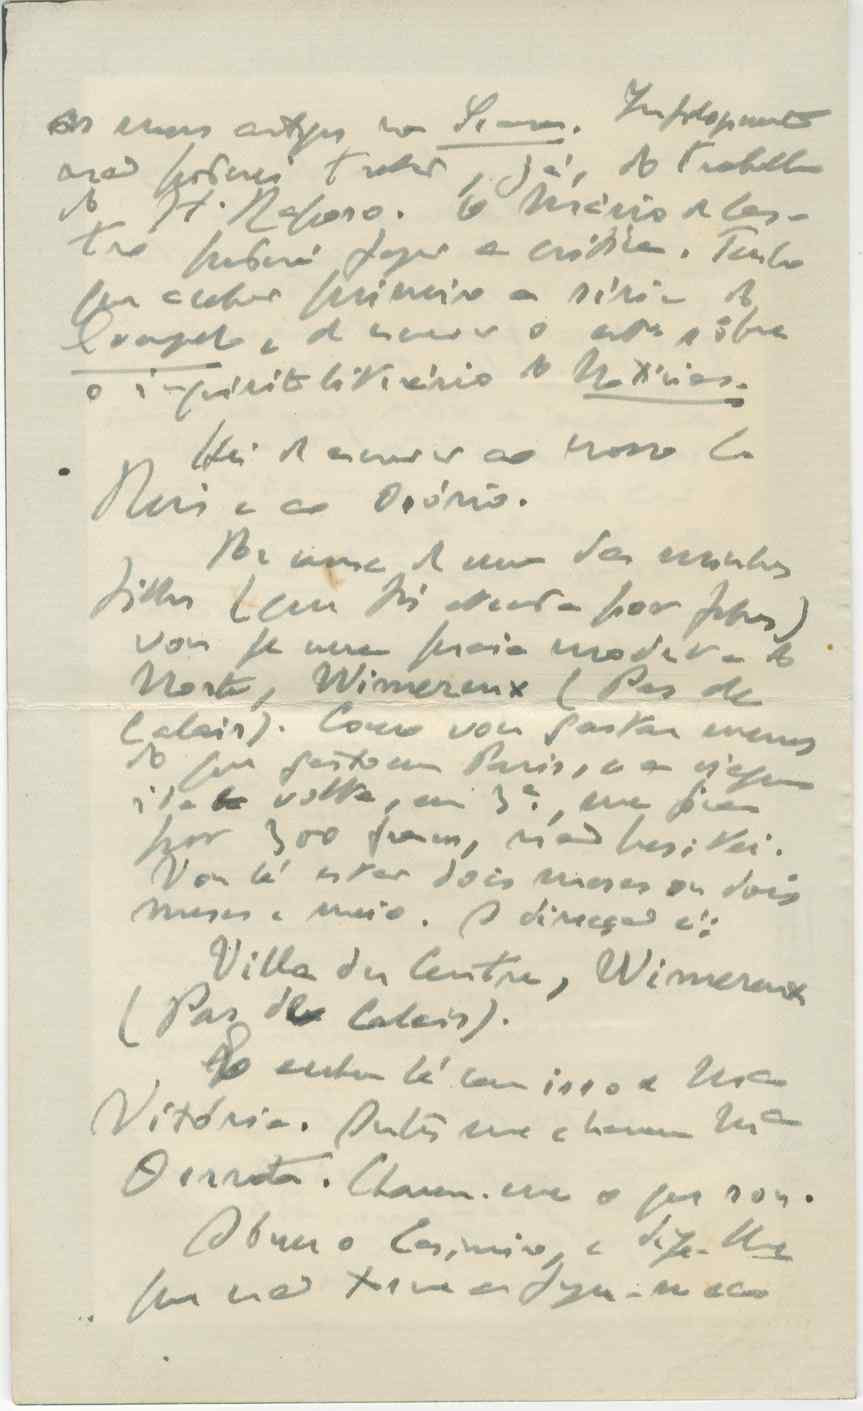 os meus artigos na Seara. Infelizmente
não poderei tratar, já, do trabalho
do H. Raposo. O Mário de Cas-
tro poderá fazer a crítica. Tenho
que acabar primeiro a série do
e de escrever o sôbre
o inquérito literário do Notícias.
Hei de escrever ao nosso Ca
Reis e ao Osório.
Por causa de uma das minhas
filhas (que foi atacada por febres)
vou p. uma praia modesta do
Norte, Wimereux (Pas de
Calais). Como vou gastar menos
do que gasto em Paris, e a viagem
ida e volta, em 3ª, me fica
por 300 francos, não hesitei.
Vou lá estar dois meses ou dois
meses e meio. A direcção é:
Villa du Centre, Wimereux
(Pas de Calais).
lá com isso de Mª da
Vitória. Antes me chamem Mª da
Derrota. Chamem-me o que sou.
Abrace o Casimiro, e diga-lhe
que não torne a